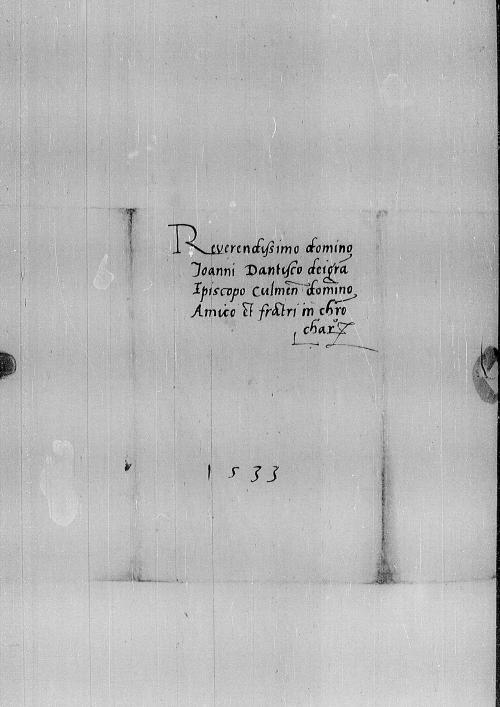 Reverendissimo domino
Joanni Dantisco dei gra̅
Episcopo Culmen̅ domino
Amico et fratri in chro̅
char°
1533